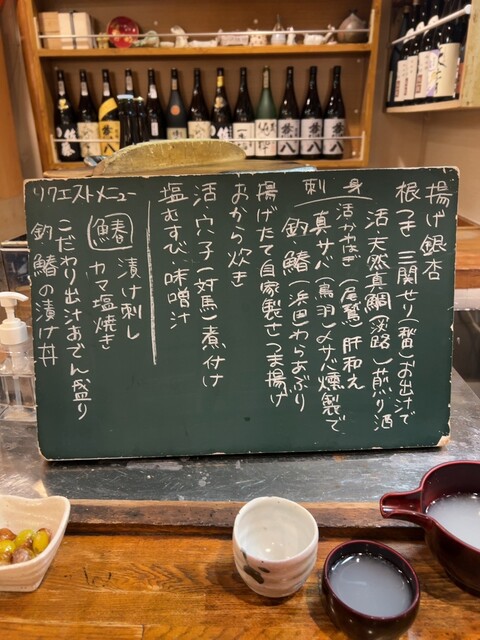 揚げ銀杏
根つき 三関せり(秋田)お出汁で
活 天然真鯛(淡路)煎り酒
刺身
活かわはぎ(尾鷲)肝和え
真サバ(鳥羽)〆サバ燻製で
釣 鰆(浜田)わらあぶり
揚げたて自家製さつま揚げ
おから炊き
活 穴子(対馬)煮付け
塩むすび、味噌汁
リクエストメニュー
鰆 漬け刺し
カマ塩焼き
こだわり出汁おでん盛り
釣 鰆の漬け丼